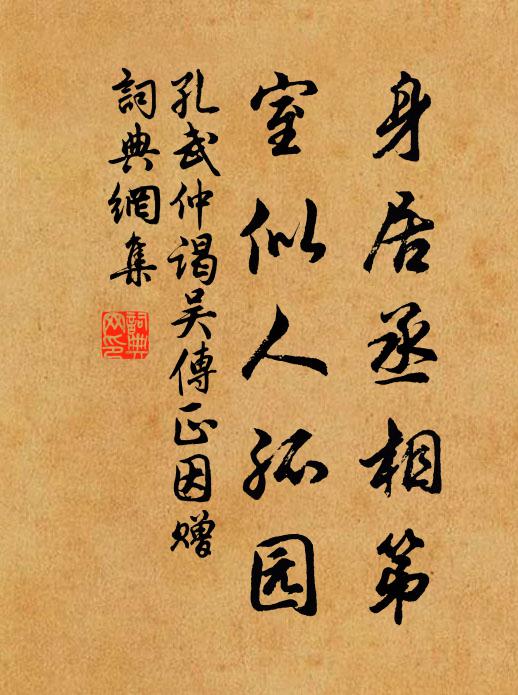 身居丞相第
室似人孤园
孔武仲谒吴傅正因赠
詞典網集
詞典网印